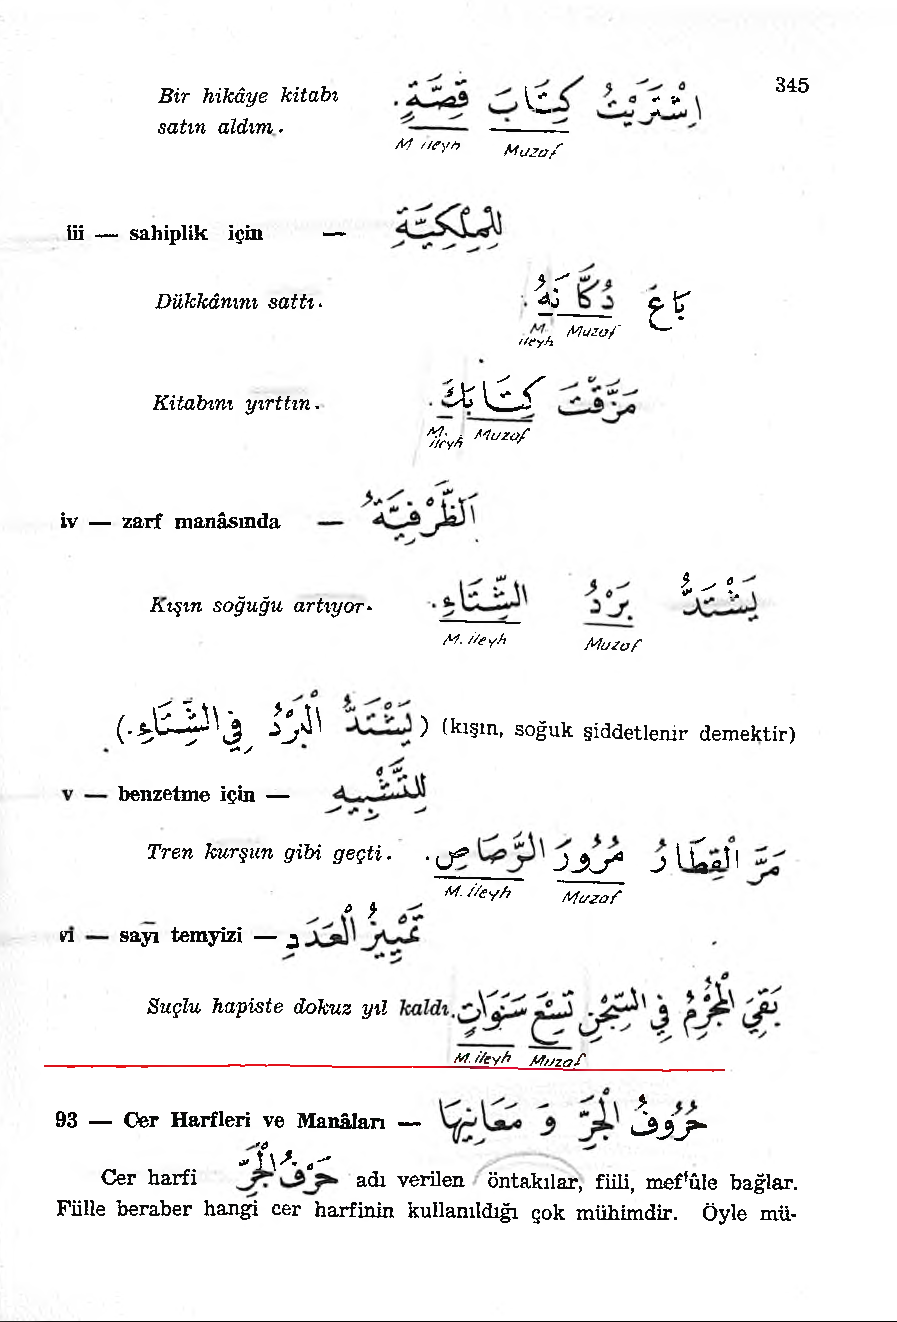 345
Bir hikâye kitabı اِشْتَرَيْتُ كِتَابَ قِصَّةٍ.
satın aldım.
M ileyh Muzaf
iii — sahiplik için — لِلْمِلْكِيَّةِ
Dükkânını sattı. بَاعَ دُكَّانَهُ.
M. ileyh Muzaf
Kitabını yırttın. مَزَّقْتَ كِتَابَكَ.
M. ileyh Muzaf
iv — zarf manâsında — اَلظَّرْفِيَّةُ
Kışın soğuğu artıyor. يَشْتَدُّ بَرْدُ الشِّتَاءِ.
M. ileyh Muzaf
(يَشْتَدُّ الْبَرْدُ فِي الشِّتَاءِ.) (kışın, soğuk şiddetlenir demektir)
v — benzetme için — لِلتَّشْبِيهِ
Tren kurşun gibi geçti. مَرَّ الْقِطَارُ مُرُورَ الرَّصَاصِ.
M. ileyh Muzaf
vi — sayı temyizi — تَمْيِيزُ الْعَدَدِ
Suçlu hapiste dokuz yıl kaldı. بَقِيَ الْمُجْرِمُ فِي السِّجْنِ تِسْعَ سَنَوَاتٍ.
M. ileyh Muzaf
93 — Cer Harfleri ve Manâları — حُرُوفُ الْجَرِّ وَ مَعَانِيهَا
Cer harfi حَرْفُ الْجَرِّ adı verilen öntakılar, fiili, mef'ûle bağlar.
Fiille beraber hangi cer harfinin kullanıldığı çok mühimdir. Öyle mü-